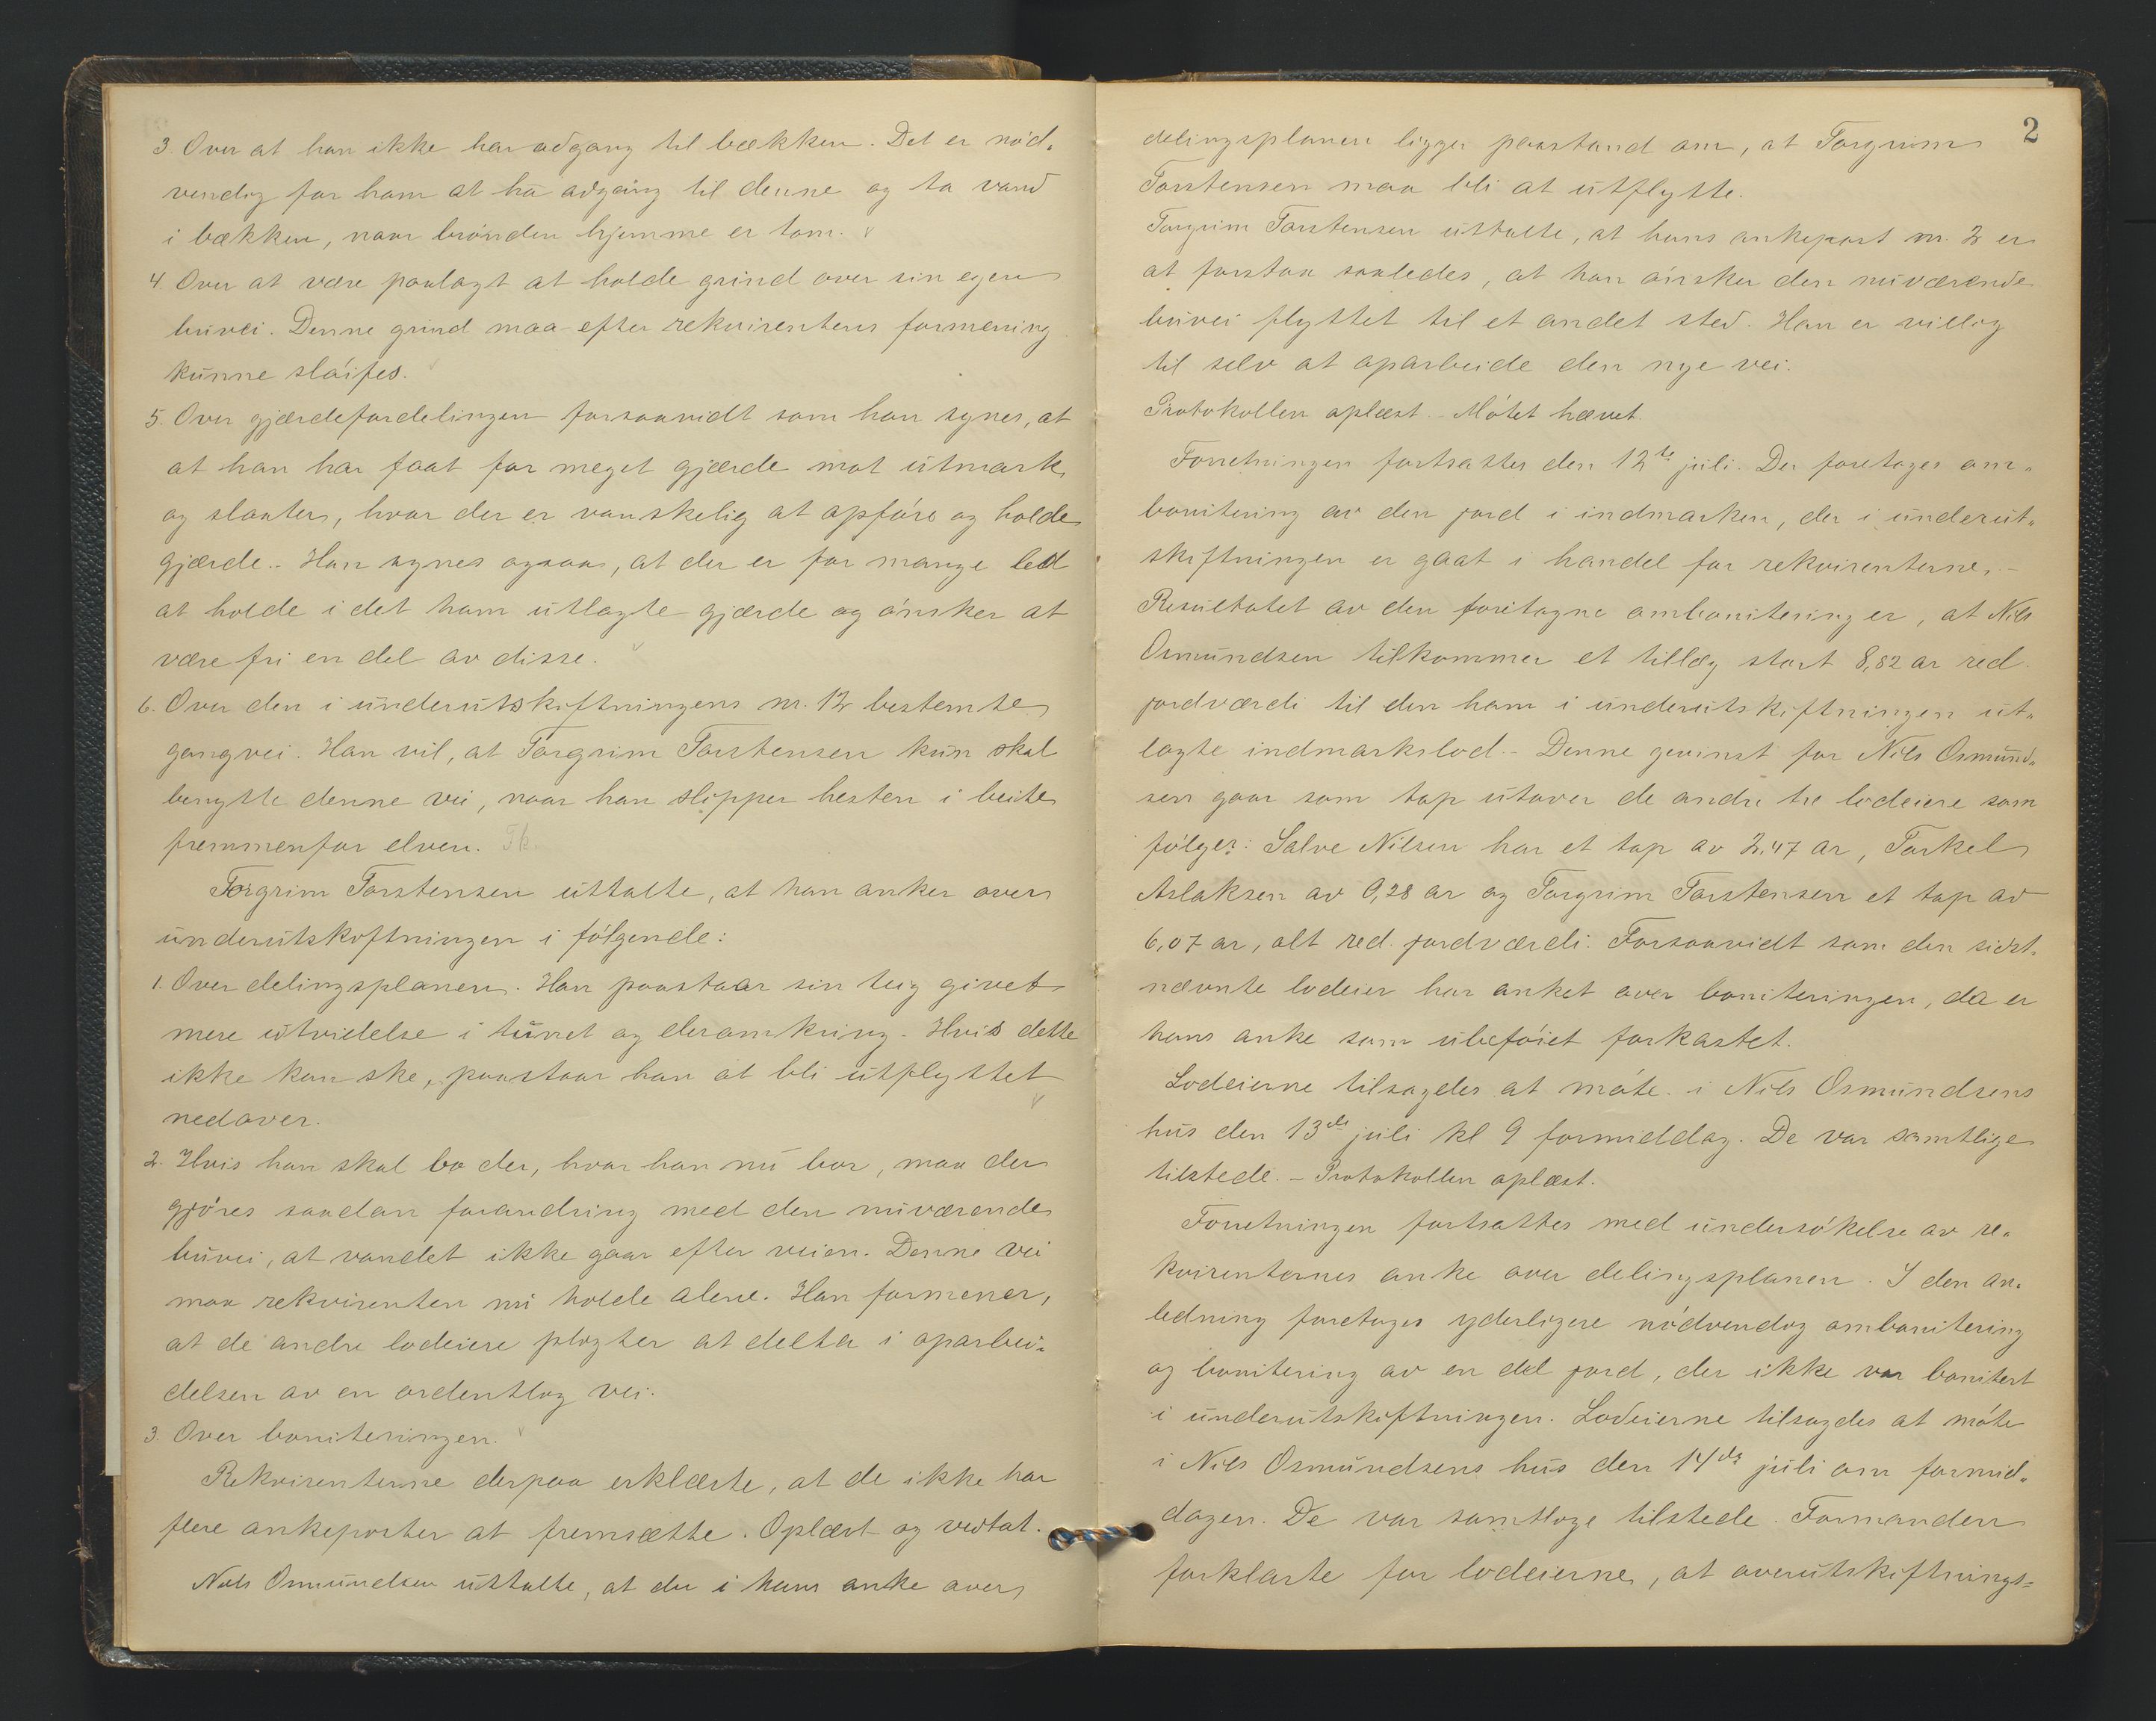 3. Over at han ikke har adgang til bækken. Det er nød-
vendig for ham at ha adgang til denne og ta vand
i bækken, naar brønden hjemme er tom.
4 Over at være paalagt at holde grind over sin egen
buvei. Denne grind maa efter rekvirentens formening
kunne sløifes.
5. Over gjærdefordelingen forsaavidt som han synes, at
at han har faat for meget gjærde mot utmark
og slaater, hvor der er vanskelig at opføre og holde
gjærde. - Han synes ogsaa, at der er for mange led
at holde i det ham utlagte gjærde og ønsker at
være fri en del av disse.
6. Over den i underutskiftningens nr. 12 bestemte
gangvei. Han vil, at Torgrim Torstensen kun skal
benytte denne vei, naar han slipper hesten i beite
fremmenfor elven.
Torgrim Torstensen uttalte, at han anker over
underutskiftningen i følgende:
1. Over delingsplanen. Han paastaar sin teig givet
mere utvidelse i tunet og deromkring. Hvis dette
ikke kan ske, paastaar han at bli utflyttet
nedover.
2. Hvis han skal bo der, hvor han nu bor, maa der
gjøres saadan forandring med den nuværende
buvei, at vandet ikke gaar efter veien. Denne vei
maa rekvirenten nu holde alene. Han formener,
at de andre lodeiere pligter at delta i oparbei-
delsen av en ordentlig vei.
3. Over boniteringen.
Rekvirenterne derpaa erklærte, at de ikke har
flere ankeposter at fremsætte. Oplæst og vedtat.
Nils Osmundsen uttalte, at der i hans anke over
2
delingsplanen ligger paastand om, at Torgrim
Torstensen maa bli at utflytte.
Torgrim Torstensen uttalte, at hans ankepost nr. 2 er
at forstaa saaledes, at han ønsker den nuværende
buvei flyttet til et andet sted. Han er villig
til selv at oparbeide den nye vei.
Protokollen oplæst. - Møtet hævet.
Forretningen fortsattes den 12te juli. Der foretages om-
bonitering av den jord i indmarken, der i underut-
skiftningen er gaat i handel for rekvirenterne. -
Resultatet av den foretagne ombonitering er, at Nils
Osmundsen tilkommer et tillæg stort 8,82 ar red.
jordværdi til den ham i underutskiftningen ut-
lagte indmarkslod. - Denne gevinst for Nils Osmund-
sen gaar som tap utover de andre tre lodeiere som
følger: Salve Nilsen har et tap av 2,47 ar, Torkel
Aslaksen av 0,28 ar og Torgrim Torstensen et tap av
6,07 ar, alt red. jordværdi. Forsaavidt som den sidst-
nævnte lodeier har anket over boniteringen, da er
hans anke som ubeføiet forkastet.
Lodeierne tilsagdes at møte i Nils Osmundsens
hus den 13de juli kl 9 formiddag. De var samtlige
tilstede. - Protokollen oplæst.
Forretningen fortsattes med undersøkelse av re-
kvirenternes anke over delingsplanen. I den an-
ledning foretages yderligere nødvendig ombonitering
og bonitering av en del jord, der ikke var bonitert
i underutskiftningen. Lodeierne tilsagdes at møte
i Nils Osmundsens hus den 14de juli om formid-
dagen. De var samtlige tilstede. Formanden
forklarte for lodeierne, at overutskiftnings=